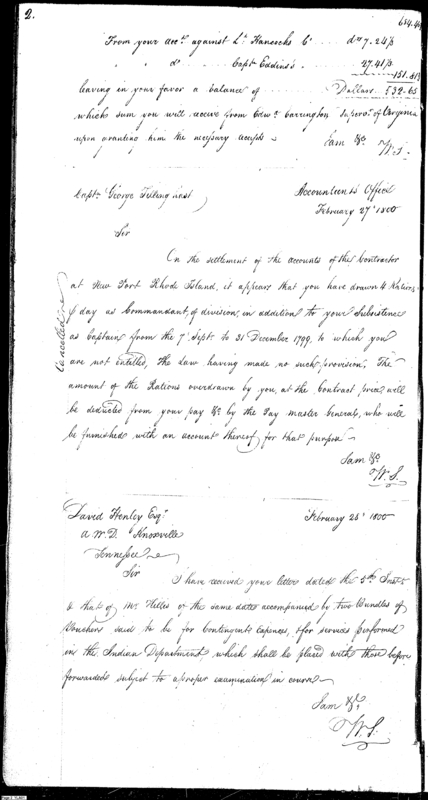 2.
From your acct. against Lt. Hancocks Co. dr 7.24⅓
" do " Capt Eddins's " 27.41⅓
151.81⅓
leaving in your favor a balance of Dollars 532.65
which sum you will receive from Edwd. Carrington Supervr. of Virginia
upon granting him the necessary receipts
I am &c.
W. S.
Capt. George Tillinghast
Accountants Office
February 27th 1800
Sir
On the settlement of the accounts of the Contractor
at New Port Rhode Island, it appears that you have drawn 4 Rations
⅌ day as Commandant, of division, in addition to your Subsistence
as Captain from the 7th Sept. to 31 December 1799, to which you
are not entitled, the Law having made no such provision. The
amount of the Rations overdrawn by you, at the Contract price, will
be deducted from your pay &c by the Pay master General, who will
be furnished with an account thereof for that purpose
Cancelled
I am &c.
W. S.
David Henley Esqr.
A. W. D. Knoxville
Tennessee
February 28th 1800
Sir
I have received your letter dated the 5th Inst.
& that of Mr. of the same date accompanied by two Bundles of
Vouchers said to be for Contingent Expences, & for services performed
in the Indian Department which shall be placed with those before
forwarded subject to a proper examination in course
I am &c.
W. S.